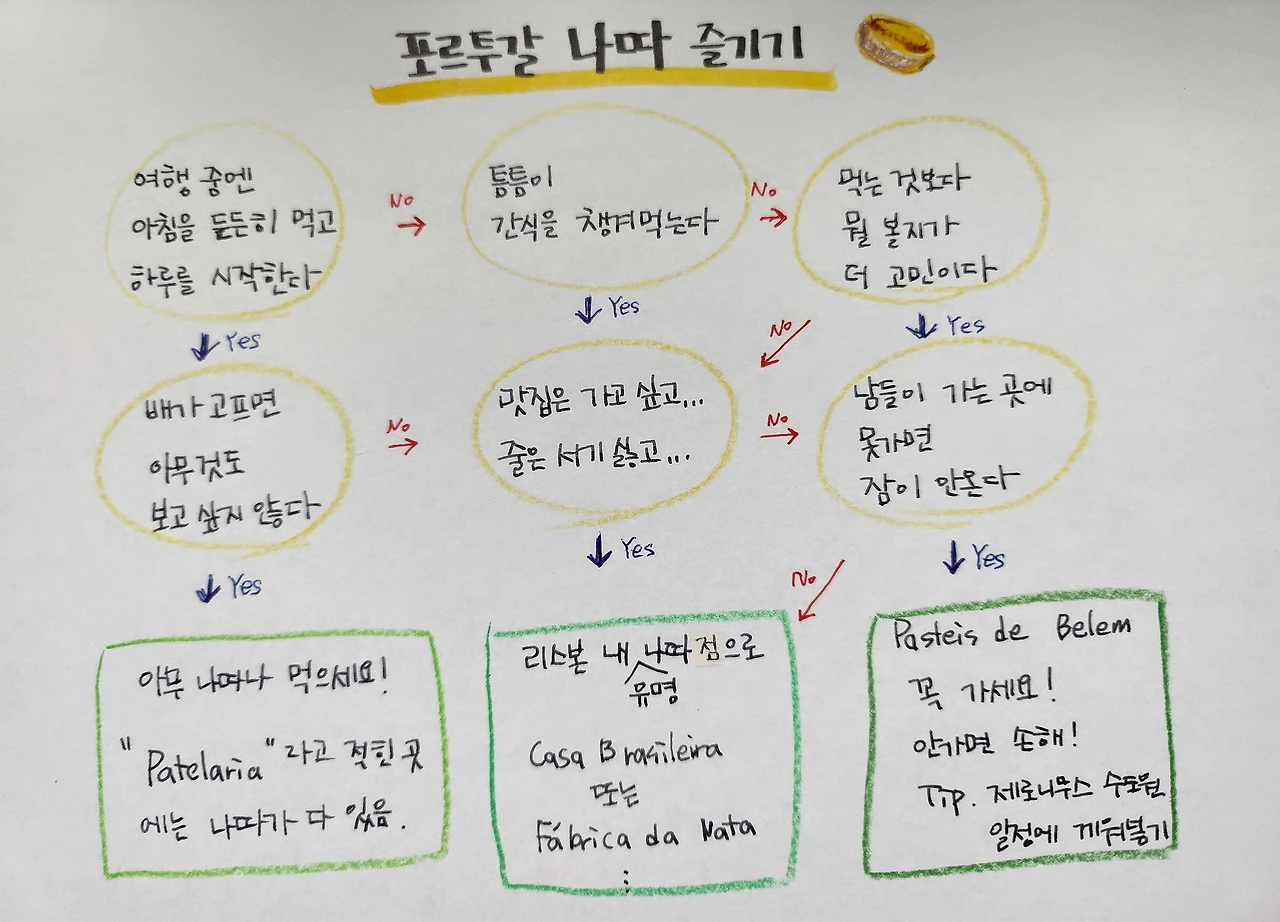 포르투갈 나따 즐기기
여행 중엔
아침을 든든히 먹고
하루를 시작한다
No
틈틈이
간식을 챙겨먹는다
No
먹는 것보다
뭘 볼지가
더 고민이다
Yes
Yes
No
Yes
배가 고프면
아무것도
보고 싶지 않다
No
맛집은 가고 싶고...
줄은 서기 싫고...
No
남들이 가는 곳에
못가면
잠이 안온다
Yes
Yes
No
Yes
아무 나따나 먹으세요!
"Patelaria"라고 적힌 곳
에는 나따가 다 있음.
리스본 내 나따 점으로
유명
Casa Brasileira
또는
Fábrica da Nata
:
Pasteis de Belem
꼭 가세요!
안가면 손해!
TIP. 제로니무스 수도원
일정에 끼워넣기